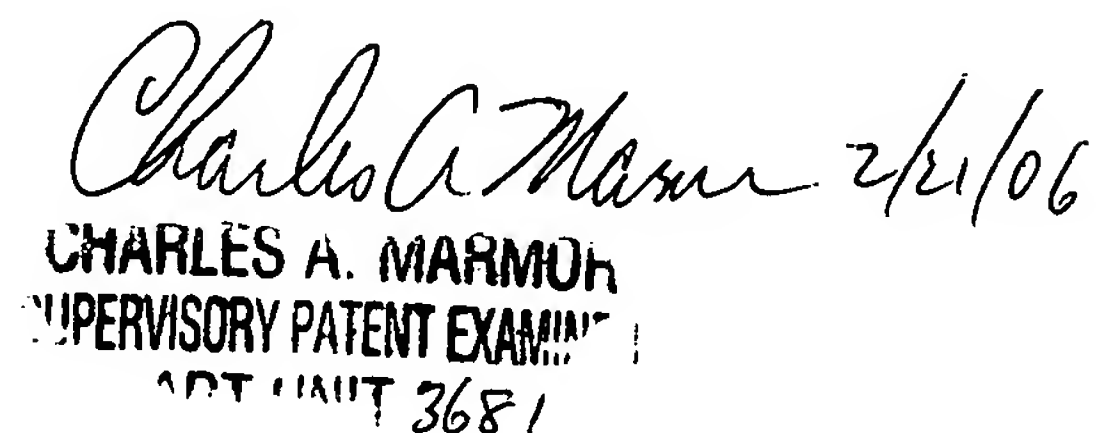 Charles A Marmor 2/21/06
CHARLES A. MARMOR
SUPERVISORY PATENT EXAMINER
ART UNIT 3681